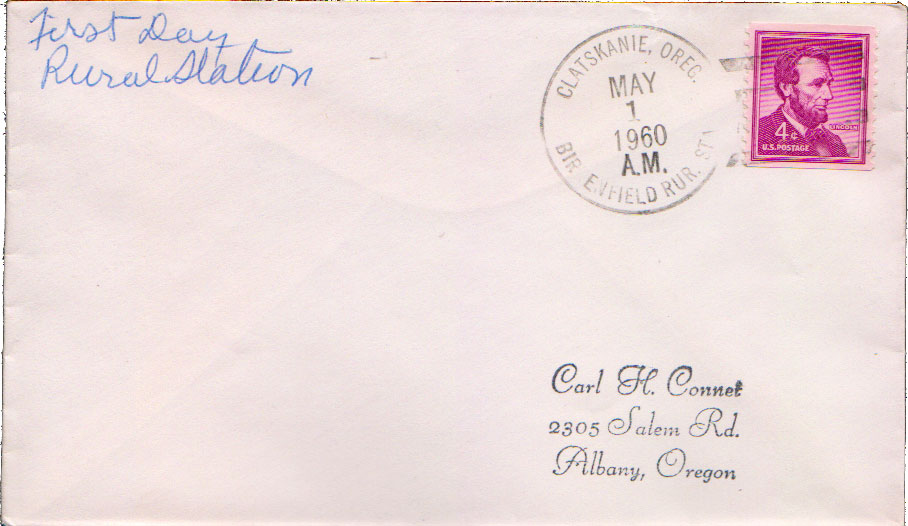 First Day
Rural Station
CLATSKANIE, OREG.
MAY
1
1960
A.M.
ENFIELD RUR. STA
LINCOLN
4¢
U.S. POSTAGE
Carl H. Connet
2305 Salem Rd.
Albany, Oregon